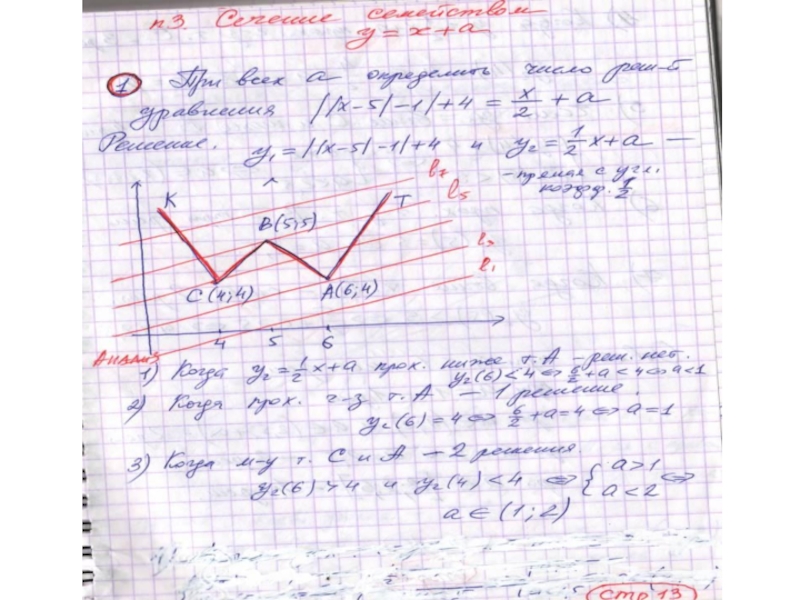 п3. Сечение семейством
y = x + a
1 При всех a определить число реш-й
уравнения ||x-5|-1|+4 = x/2 + a
Решение. y₁ = ||x-5|-1|+4 и y₂ = 1/2 x + a —
- прямая с угл.
коэфф. 1/2
K
B(5;5)
T
C(4;4)
A(6;4)
4 5 6
Анализ
1) Когда y₂ = 1/2 x + a прох. ниже т. A - реш. нет.
y₂(6) < 4 ⇔ 6/2 + a < 4 ⇔ a < 1
2) Когда прох. ч-з т. A — 1 решение.
y₂(6) = 4 ⇔ 6/2 + a = 4 ⇔ a = 1
3) Когда м-у т. C и A — 2 решения.
y₂(6) > 4 и y₂(4) < 4 ⇔ { a > 1
a < 2 ⇔
a ∈ (1; 2)
стр 13